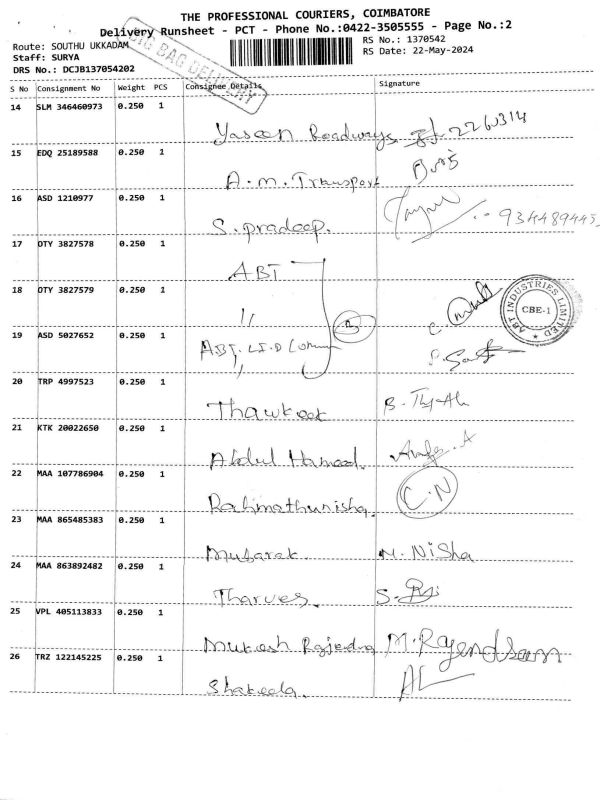 THE PROFESSIONAL COURIERS, COIMBATORE
Delivery Runsheet - PCT - Phone No.:0422-3505555 - Page No.:2
Route: SOUTHU UKKADAM
RS No.: 1370542
Staff: SURYA
RS Date: 22-May-2024
DRS No.: DCJB137054202
BIG BAG DELIVERY
S No Consignment No Weight PCS Consignee Details Signature
14 SLM 346460973 0.250 1
Yaseen Roadways
15 EDQ 25189588 0.250 1
A.M. Transport
16 ASD 1210977 0.250 1
S. pradeep.
17 OTY 3827578 0.250 1
ABT
18 OTY 3827579 0.250 1
"
3
ABT INDUSTRIES LIMITED
CBE-1
19 ASD 5027652 0.250 1
ABT
20 TRP 4997523 0.250 1
Thawkeek
21 KTK 20022650 0.250 1
Abdul Hameed.
22 MAA 107786904 0.250 1
Rahmathunisha.
C.N
23 MAA 865485383 0.250 1
Mubarak. M. NiSha
24 MAA 863892482 0.250 1
Tharves.
25 VPL 405113833 0.250 1
Mukesh Rajendra M. Rajendran
26 TRZ 122145225 0.250 1
Shakeela.